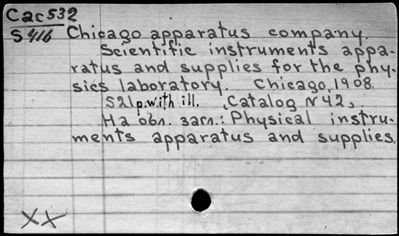 Cac532
S416 Chicago apparatus company.
Scientific instruments appa-
ratus and supplies for the phy-
sics laboratory. Chicago, 1908.
521p. with ill. Catalog N42,
На обл. загл.: Physical instru-
ments apparatus and supplies.
XX